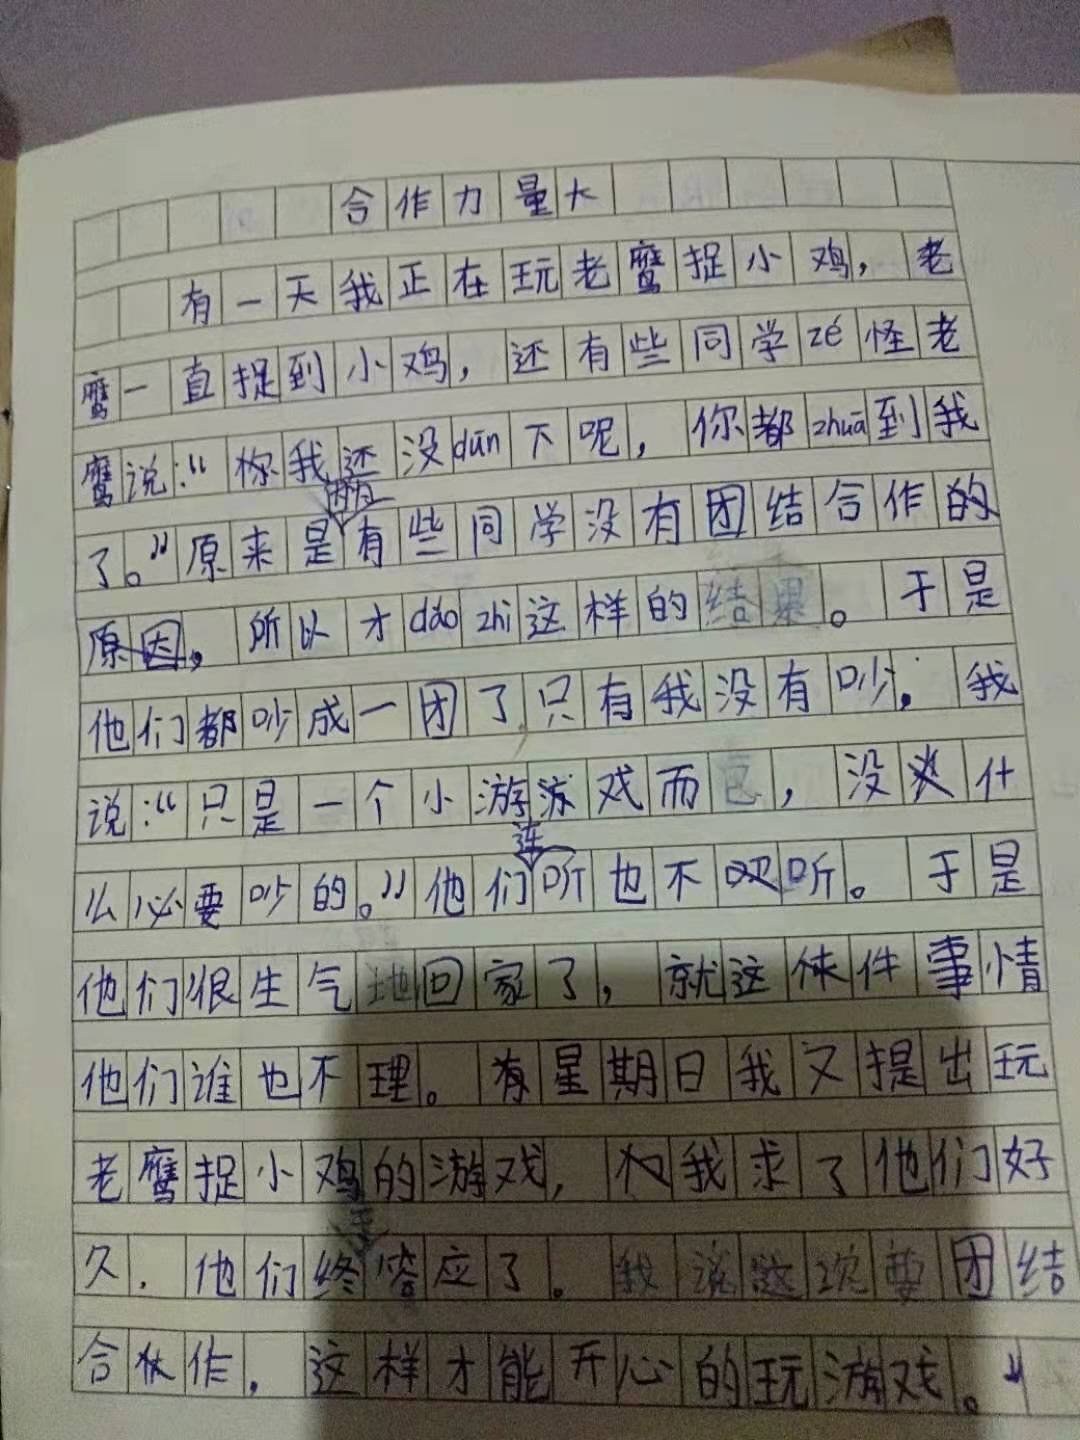 合作力量大
有一天我正在玩老鹰捉小鸡，老
鹰一直捉到小鸡，还有些同学zé怪老
鹰说：“你我还没dūn下呢，你都zhuā到我
了。”原来是因为有些同学没有团结合作的
原因，所以才dǎo zhì这样的结果。于是
他们都吵成一团了只有我没有吵。我
说：“只是一个小游游戏而已，没什
么必要吵的。”他们连听也不听。于是
他们很生气地回家了，就这件事情
他们谁也不理。有星期日我又提出玩
老鹰捉小鸡的游戏，我求了他们好
久．他们终答应了。我说这次要团结
合作，这样才能开心的玩游戏。”